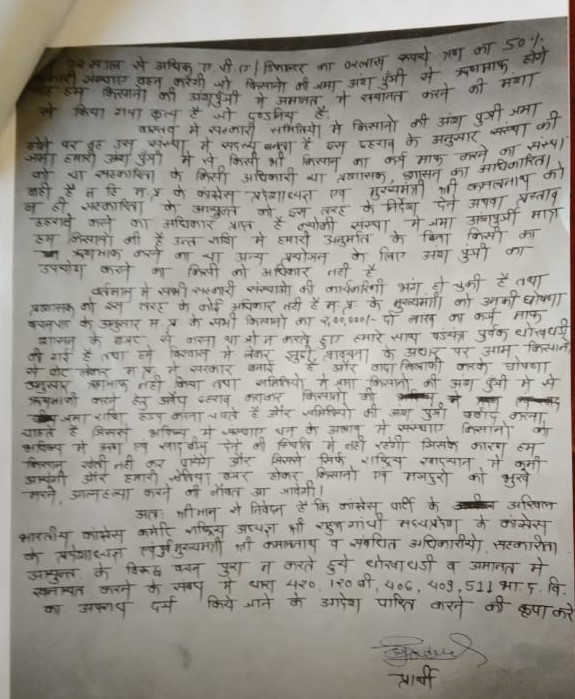 साल से अधिक एन.पी.ए / डिफाल्टर का 02 लाख रूपये ऋण का 50%
सहकारी संस्थाए वहन करेगी जो किसानो की जमा अंश पुँजी से ऋणमाफ होगे
हम किसानो की अंशपुँजी मे अमानत मे खयानत करने की मंशा
से किया गया कृत्य है जो दण्डनिय है.
वास्तव मे सहकारी समितियो मे किसानो की अंश पुजी जमा
होने पर वह उस संस्था मे सदस्य बनता है इस ठहराव के अनुसार संस्था की
जमा हमारी अंश पुँजी मे से किसी भी किसान का कर्ज माफ करने का संस्था
को या सहकारिता के किसी अधिकारी या प्रशासक, प्रशासन का आधिकारिता
नही है न हि म.प्र के कांग्रेस प्रदेशाध्यक्ष एवं मुख्यमंत्री श्री कमलनाथ को
न ही सहकारिता के आयुक्त को इस तरह के निर्देश देने अथवा प्रस्ताव
ठहराव करने का अधिकार प्राप्त है क्योकी संस्था मे जमा अंशपुजी मात्र
हम किसानो की है उक्त राशि मे हमारी अनुमति के बिना किसी का
ऋणमाफ करने का या अन्य प्रयोजन के लिए अंश पुँजी का
उपयोग करने का किसी को अधिकार नही है
वर्तमान मे सभी सहकारी संस्थाओ की कार्यकारिणी भंग हो चुकी है तथा
प्रशासक को इस तरह के कोई अधिकार नही है म.प्र के मुख्यमंत्री को उनकी घोषणा
के अनुसार म.प्र के सभी किसानो का २,00,000/- दो लाख का कर्ज माफ
शासन के बजट से करना था जो न करते हुए हमारे साथ षडयंत्र पुर्वक धोखाधडी
की गई है तथा हमे विश्वास मे लेकर झुठी, भावना के अधार पर आम किसानो
से वोट लेकर म.प्र मे सरकार बनाई है और वादा खिलाफी करके घोषणा
अनुसार ऋणमाफ नही किया तथा समितियो मे जमा किसानो की अंश पुँजी मे से
ऋणमाफी करने हेतु अवैध ठहराव कराकर किसानो की
जमा राशि हडप करना चाहते है और समितियो की अंश पुजी बर्बाद करना
चाहते है जिससे भविष्य मे संस्थाए धन के अभाव मे संस्थाए किसानो को
भविष्य मे ऋण एवं खाद बीज देने की स्थिति मे नही रहेगी जिसके कारण हम
किसान खेती नही कर पायेगे और जिससे सिर्फ राष्ट्रिय खाद्यान्न मे कमी
आयेगी और हमारी खेतिया बंजर होकर किसानो एवं मजदुरो को भुखे
मरने, आत्महत्या करने की नौबत आ जावेगी।
अतः श्रीमान से निवेदन है कि कांग्रेस पार्टी के अखिल
भारतीय कांग्रेस कमेटि राष्ट्रिय अध्यक्ष श्री राहुल गांधी मध्यप्रदेश के कांग्रेस
के प्रदेशाध्यक्ष एवं मुख्यमंत्री श्री कमलनाथ व संबंधित अधिकारीयो, सहकारिता
आयुक्त के विरूद्ध वचन पुरा न करते हुये धोखाधडी व अमानत मे
खयानत करने के संबध मे धारा ४२०, १२० बी, 406, 409, 511 भा.द.वि.
का अपराध दर्ज किये जाने के आदेश पारित करने की कृपा करे
प्रार्थी